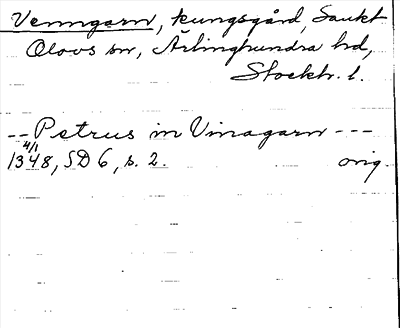 Venngarn, kungsgård, Sankt
Olovs sn, Ärlinghundra hd,
Stockh. l.
-- Petrus in Vinagarn ---
4/1
1348, SD 6, s. 2. orig.